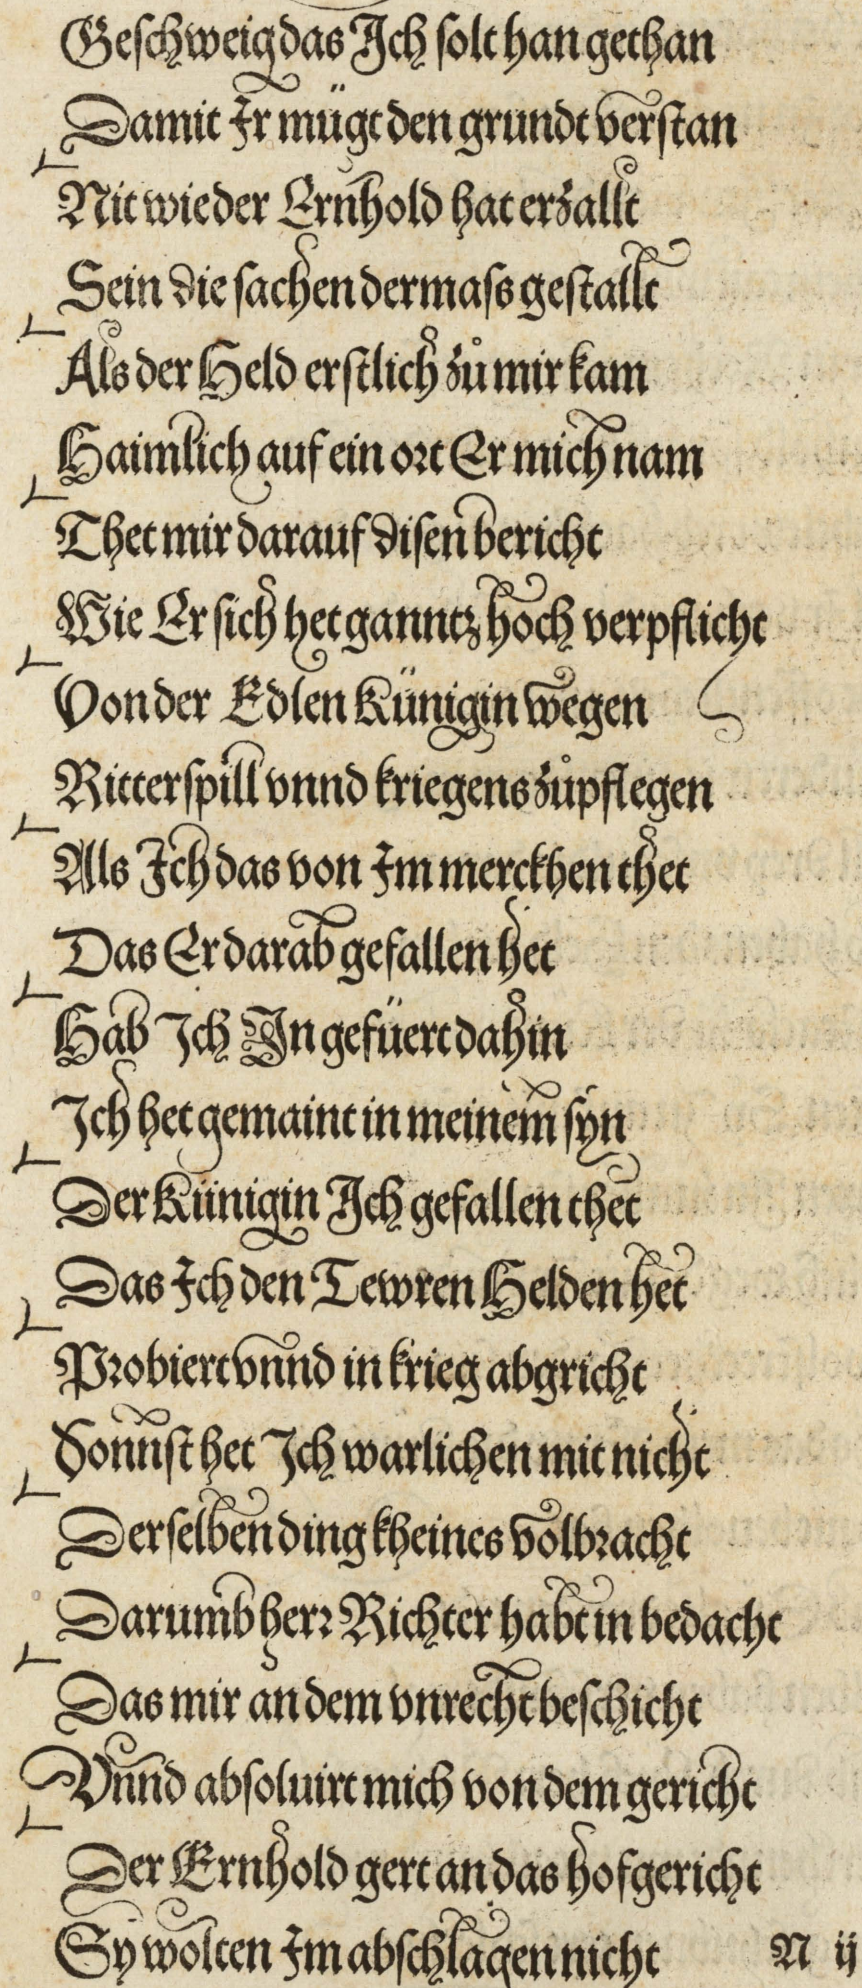 Geschweig das Ich solt han gethan
Damit Ir mügt den grundt verstan
Nit wie der Ernhold hat erzallt
Sein die sachen dermass gestallt
Als der Held erstlich zů mir kam
Haimlich auf ein ort Er mich nam
Thet mir darauf disen bericht
Wie Er sich het ganntz hoch verpflicht
Von der Edlen Künigin wegen
Ritterspill vnnd kriegens zůpflegen
Als Ich das von Im merckhen thet
Das Er darab gefallen het
Hab Ich In gefüert dahin
Ich het gemaint in meinem syn
Der Künigin Ich gefallen thet
Das Ich den Tewren Helden het
Probiert vnnd in krieg abgricht
Sonnst het Ich warlichen mit nicht
Derselben ding kheines volbracht
Darumb herr Richter habt in bedacht
Das mir an dem vnrecht beschicht
Vnnd absoluirt mich von dem gericht
Der Ernhold gert an das hofgericht
Sy wolten Im abschlagen nicht N ij